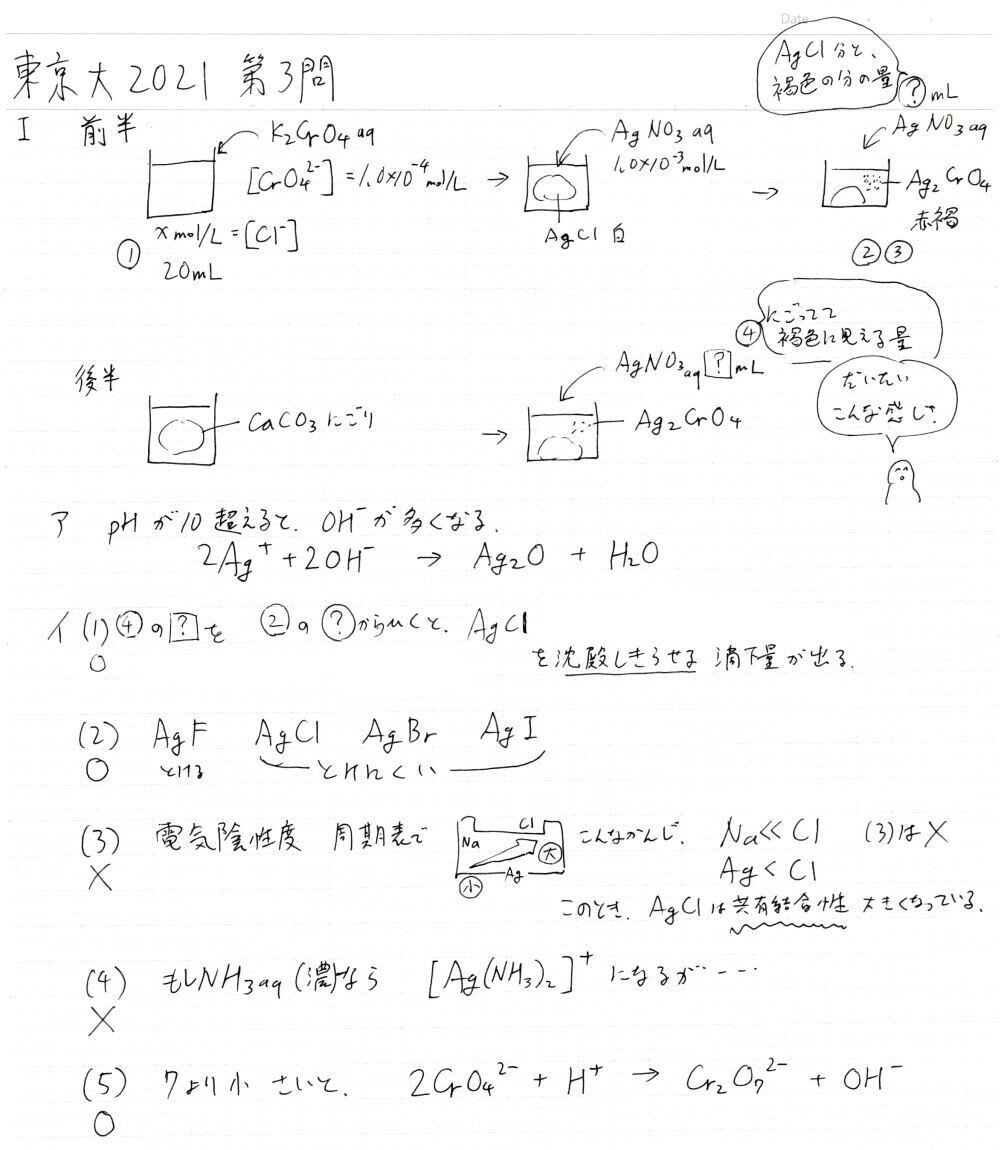 Date
東京大2021 第3問
AgCl分と、
褐色の分の量
? mL
I 前半
K₂CrO₄aq
[CrO₄²⁻] = 1.0×10⁻⁴mol/L
→
AgNO₃aq
1.0×10⁻³mol/L
→
AgNO₃aq
Ag₂CrO₄
赤褐
AgCl 白
x mol/L = [Cl⁻]
① 20mL
②③
④ にごってて
褐色に見える量
後半
AgNO₃aq ? mL
CaCO₃にごり
→
Ag₂CrO₄
だいたい
こんな感じ?
ア pHが10超えると、OH⁻が多くなる。
2Ag⁺+2OH⁻ → Ag₂O + H₂O
イ (1) ④の?を ②の?からひくと、AgCl
○ を沈殿しきらせる 滴下量が出る。
(2) AgF AgCl AgBr AgI
○ とける とけにくい
(3) 電気陰性度 周期表で Na Cl Ag 小 大 こんなかんじ、 Na≪Cl (3)は×
× Ag<Cl
このとき、AgClは共有結合性 大きくなっている。
(4) もしNH₃aq(濃)なら [Ag(NH₃)₂]⁺になるが…
×
(5) 7より小さいと、 2CrO₄²⁻ + H⁺ → Cr₂O₇²⁻ + OH⁻
○